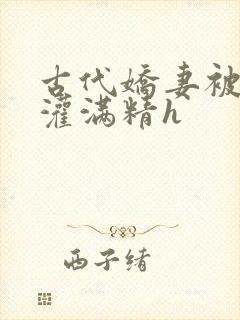 古代嬌妻被
灌满精h
西子绪